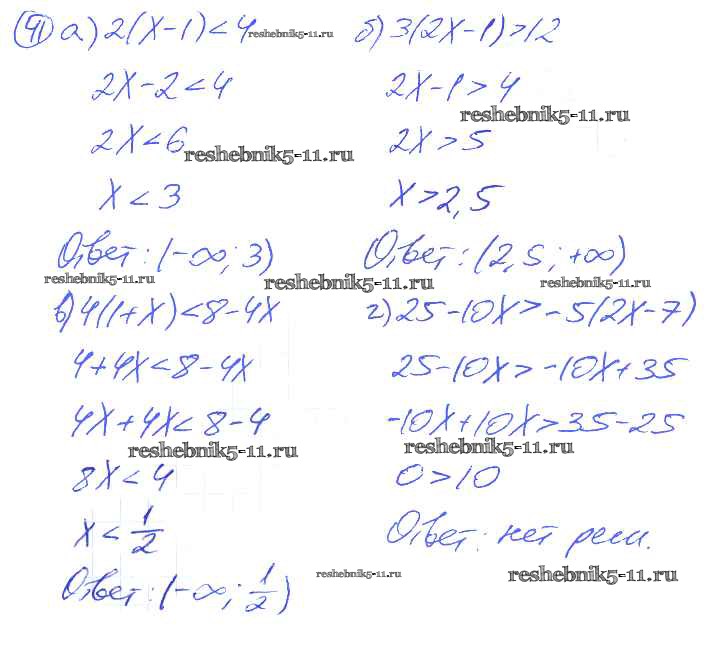 41 а) 2(x-1)<4 reshebnik5-11.ru
2x-2<4
2x<6 reshebnik5-11.ru
x<3
Ответ: (-∞; 3)
reshebnik5-11.ru
б) 3(2x-1)>12
2x-1>4
reshebnik5-11.ru
2x>5
x>2,5
Ответ: (2,5; +∞)
reshebnik5-11.ru reshebnik5-11.ru
в) 4(1+x)<8-4x
4+4x<8-4x
4x+4x<8-4
reshebnik5-11.ru
8x<4
x<1/2
Ответ: (-∞; 1/2)
г) 25-10x>-5(2x-7)
25-10x>-10x+35
-10x+10x>35-25
reshebnik5-11.ru
0>10
Ответ: нет реш.
reshebnik5-11.ru reshebnik5-11.ru